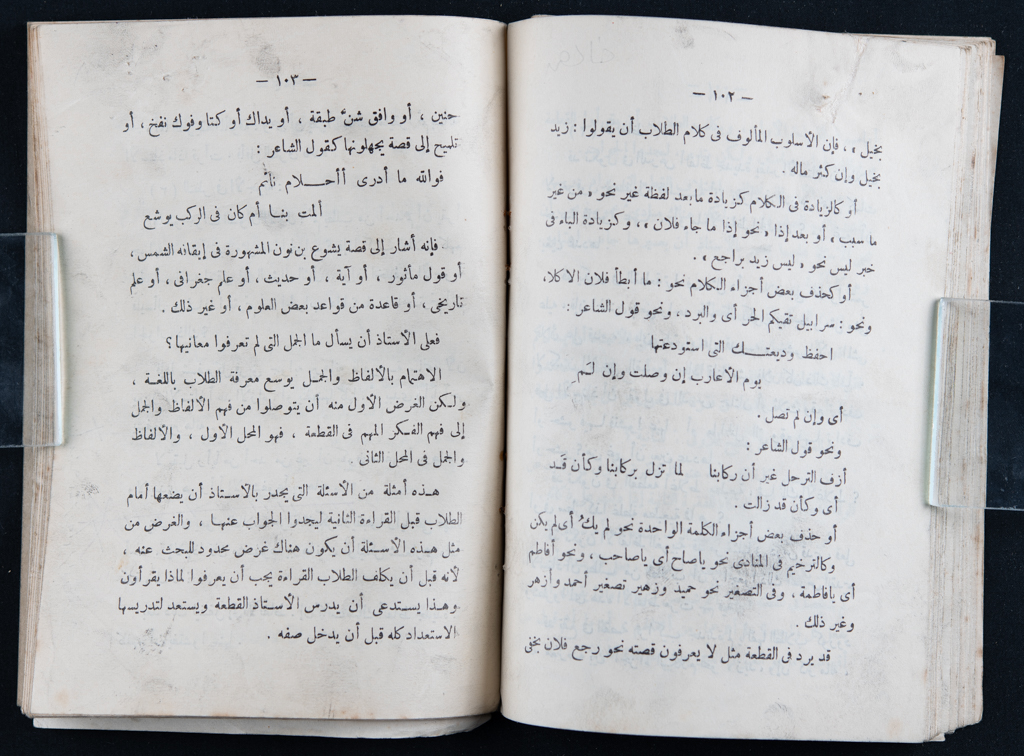 — ١٠٢ —
بخيل » ، فإن الأسلوب المألوف فى كلام الطلاب أن يقولوا : زيد
بخيل وإن كثر ماله .
أو كالزيادة فى الكلام كزيادة ما بعد لفظة غير نحو « من غير
ما سبب » أو بعد إذا « نحو إذا ما جاء فلان » ، وكزيادة الباء فى
خبر ليس نحو « ليس زيد براجع » .
أو كحذف بعض أجزاء الكلام نحو : ما أبطأ فلان الا كلا،
ونحو : سرابيل تقيكم الحر أى والبرد ، ونحو قول الشاعر :
احفظ وديعتـــك التى استودعتها
يوم الأعارب إن وصلت وإن لَـم
أى وإن لم تصل .
ونحو قول الشاعر :
أزف الترحل غير أن ركابنا لما تزل بركابنا وكأن قَـد
أى وكأن قد زالت .
أو حذف بعض أجزاء الكلمة الواحدة نحو لم يك ُ أى لم يكن
وكالترخيم فى المنادى نحو ياصاح أى ياصاحب ، ونحو أفاطم
أى يافاطمة ، وفى التصغير نحو حميد وزهير تصغير أحمد وأزهر
وغير ذلك .
قد يرد فى القطعة مثل لا يعرفون قصته نحو رجع فلان بخفى
— ١٠٣ —
حنين ، أو وافق شنٌ طبقة ، أو يداك أوكتا وفوك نفخ ، أو
تلميح إلى قصة يجهلونها كقول الشاعر :
فوالله ما أدرى أأحـــلام نائم
ألمت بنـا أم كان فى الركب يوشع
فإنه أشار إلى قصة يشوع بن نون المشهورة فى إيقافه الشمس،
أو قول مأثور ، أو آية ، أو حديث ، أو علم جغرافى ، أو علم
تاريخى ، أو قاعدة من قواعد بعض العلوم ، أو غير ذلك .
فعلى الأستاذ أن يسأل ما الجمل التى لم تعرفوا معانيها ؟
الاهتمام بالألفاظ والجمـل يوسع معرفة الطلاب باللغـة ،
ولكن الغرض الأول منه أن يتوصلوا من فهم الألفاظ والجمل
إلى فهم الفكر المهم فى القطعة ، فهو المحل الأول ، والألفاظ
والجمل فى المحل الثانى .
هـذه أمثلة من الأسئلة التى يجدر بالأسـتاذ أن يضعها أمام
الطلاب قبل القراءة الثانية ليجدوا الجواب عنهـا ، والغرض من
مثل هـذه الأسـئلة أن يكون هناك غرض محدود للبحث عنه ،
لأنه قبل أن يكلف الطلاب القراءة يجب أن يعرفوا لماذا يقرأون
وهـذا يسـتدعى أن يدرس الأسـتاذ القطعة ويستعد لتدريسها
الاستعداد كله قبل أن يدخل صفه .